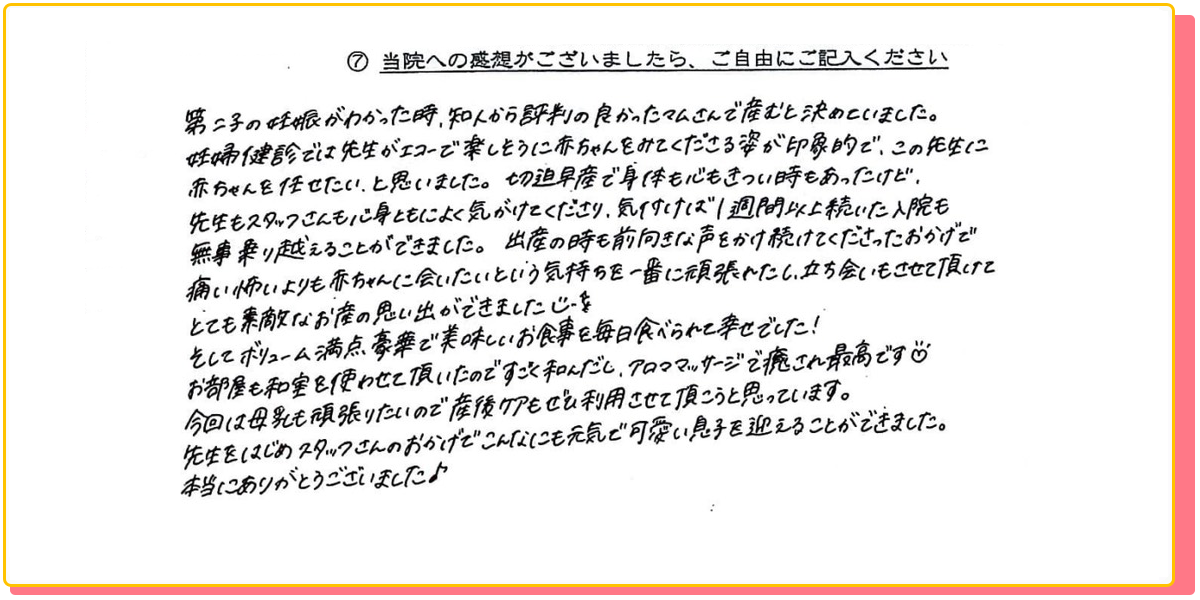 ⑦ 当院への感想がございましたら、ご自由にご記入ください
第二子の妊娠がわかった時、知人から評判の良かったマムさんで産むと決めていました。
妊婦健診では先生がエコーで楽しそうに赤ちゃんをみてくださる姿が印象的で、この先生に
赤ちゃんを任せたい、と思いました。切迫早産で身体も心もきつい時もあったけど、
先生もスタッフさんも心身ともによく気がけてくださり、気付けば1週間以上続いた入院も
無事乗り越えることができました。出産の時も前向きな声をかけ続けてくださったおかげで
痛い怖いよりも赤ちゃんに会いたいという気持ちを一番に頑張れたし、立ち会いもさせて頂けて
とても素敵なお産の思い出ができました
そしてボリューム満点、豪華で美味しいお食事を毎日食べられて幸せでした!
お部屋も和室を使わせて頂いたのですごく和んだし、アロママッサージで癒され最高です
今回は母乳も頑張りたいので産後ケアもぜひ利用させて頂こうと思っています。
先生をはじめスタッフさんのおかげでこんなにも元気で可愛い息子を迎えることができました。
本当にありがとうございました♪